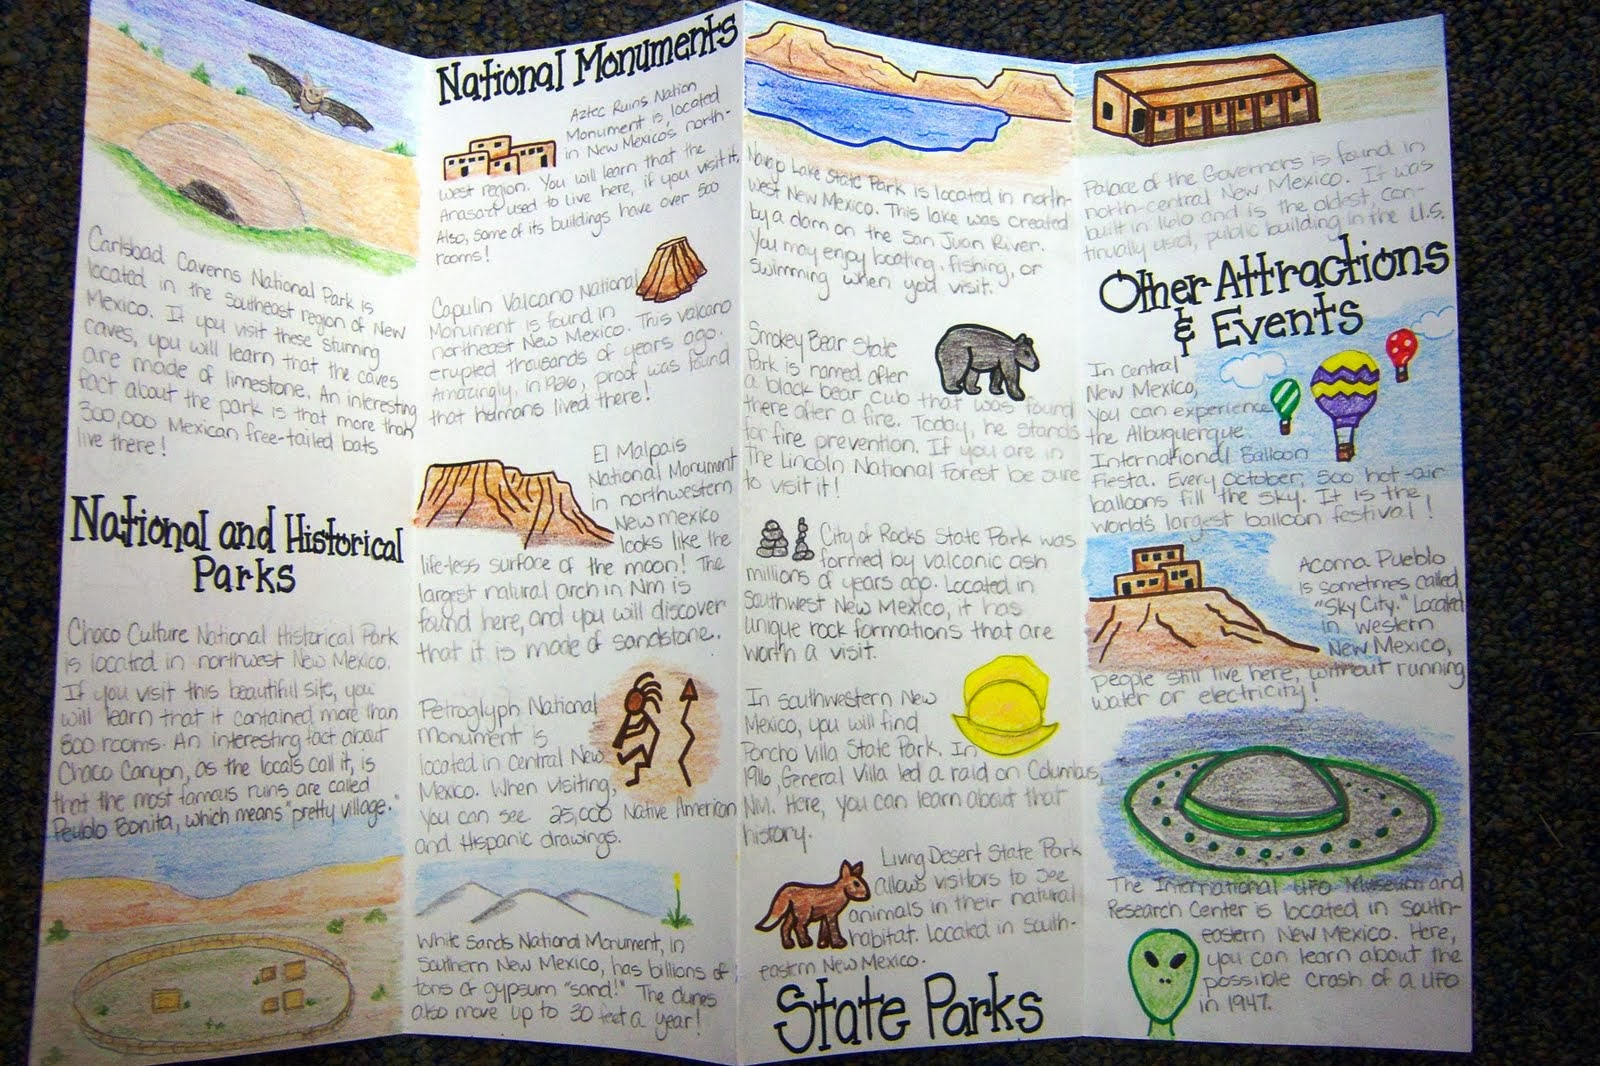 Carlsbad Caverns National Park is
located in the southeast region of New
Mexico. If you visit these stunning
caves, you will learn that the caves
are made of limestone. An interesting
fact about the park is that more than
300,000 Mexican free-tailed bats
live there!
National and Historical
Parks
Chaco Culture National Historical Park
is located in northwest New Mexico.
If you visit this beautiful site, you
will learn that it contained more than
800 rooms. An interesting fact about
Chaco Canyon, as the locals call it, is
that the most famous ruins are called
Peublo Bonita, which means "pretty village."
National Monuments
Aztec Ruins Nation
Monument is located
in New Mexico's north-
west region. You will learn that the
Anasazi used to live here, if you visit it.
Also, some of its buildings have over 500
rooms!
Capulin Valcano National
Monument is found in
northeast New Mexico. This valcano
erupted thousands of years ago.
Amazingly, in 1926, proof was found
that humans lived there!
El Malpais
National Monument
in northwestern
New Mexico
looks like the
life-less surface of the moon! The
largest natural arch in NM is
found here, and you will discover
that it is made of sandstone.
Petroglyph National
Monument is
located in Central New
Mexico. When visiting,
you can see 25,000 Native American
and Hispanic drawings.
White Sands National Monument, in
Southern New Mexico, has billions of
tons of gypsum "sand!" The dunes
also move up to 30 feet a year!
Navajo Lake State Park is located in north-
west New Mexico. This lake was created
by a dam on the San Juan River.
You may enjoy boating, fishing, or
swimming when you visit.
Smokey Bear State
Park is named after
a black bear cub that was found
there after a fire. Today, he stands
for fire prevention. If you are in
The Lincoln National Forest be sure
to visit it!
City of Rocks State Park was
formed by valcanic ash
millions of years ago. Located in
Southwest New Mexico, it has
unique rock formations that are
worth a visit.
In southwestern New
Mexico, you will find
Poncho Villa State Park. In
1916, General Villa led a raid on Columbus,
NM. Here, you can learn about that
history.
Living Desert State Park
allows visitors to see
animals in their natural
habitat. Located in south-
eastern New Mexico.
State Parks
Palace of the Governors is found in
north-central New Mexico. It was
built in 1610 and is the oldest, con-
tinually used, public building in the U.S.
Other Attractions
& Events
In central
New Mexico,
you can experience
the Albuquerque
International Balloon
Fiesta. Every October, 500 hot-air
balloons fill the sky. It is the
world's largest balloon festival!
Acoma Pueblo
is sometimes called
"Sky City." Located
in western
New Mexico,
people still live here, without running
water or electricity!
The International UFO Museum and
Research Center is located in south-
eastern New Mexico. Here,
you can learn about the
possible crash of a UFO
in 1947.